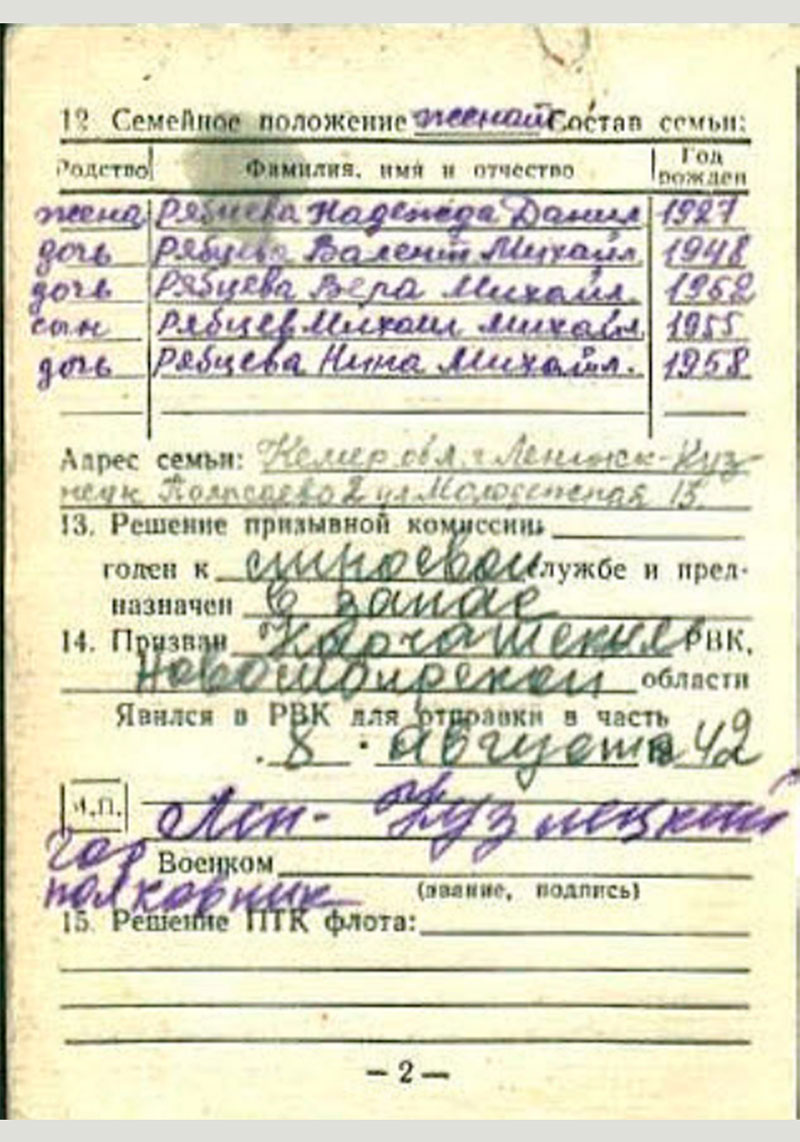 12 Семейное положение женат Состав семьи:
Родство Фамилия, имя и отчество Год рожден
жена Рябцева Надежда Данил 1927
дочь Рябцева Валент Михайл 1948
дочь Рябцева Вера Михайл. 1952
сын Рябцев Михаил Михайл. 1955
дочь Рябцева Нина Михайл. 1958
Адрес семьи: Кемер. обл. г. Ленинск-Куз-
нецк 2 ул Молодежная 15.
13. Решение призывной комиссии:
годен к строевой службе и пред-
назначен в запас
14. Призван РВК,
Новосибирской области
Явился в РВК для отправки в часть
8 августа 42
М.П. Лен-Кузнецкий
гор Военком
полковник (звание, подпись)
15. Решение ПТК флота:
— 2 —